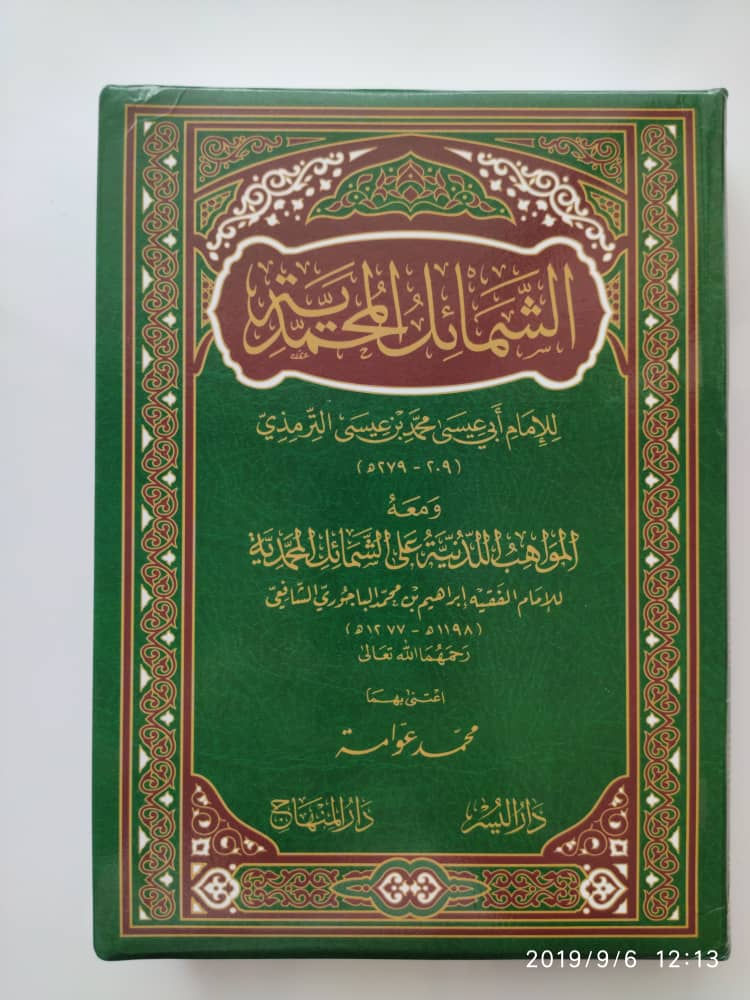 الشَّمَائِلُ المُحَمَّدِيَّة
لِلإِمَامِ أَبِي عِيسَى مُحَمَّدِ بْنِ عِيسَى التِّرمِذِيّ
(٢٠٩ - ٢٧٩ھ)
وَمَعَهُ
المَوَاهِبُ اللَّدُنِيَّةُ عَلَى الشَّمَائِلِ المُحَمَّدِيَّة
للإمام الفقيه إبراهيم بن محمد الباجوريّ الشَّافعيّ
(١١٩٨ھ - ١٢٧٧ھ)
رَحِمَهُمَا اللهُ تَعَالَى
اعْتَنَى بِهِمَا
محمّد عوّامة
دَارُ اليُسْر دَارُ المِنْهَاج
2019/9/6 12:13